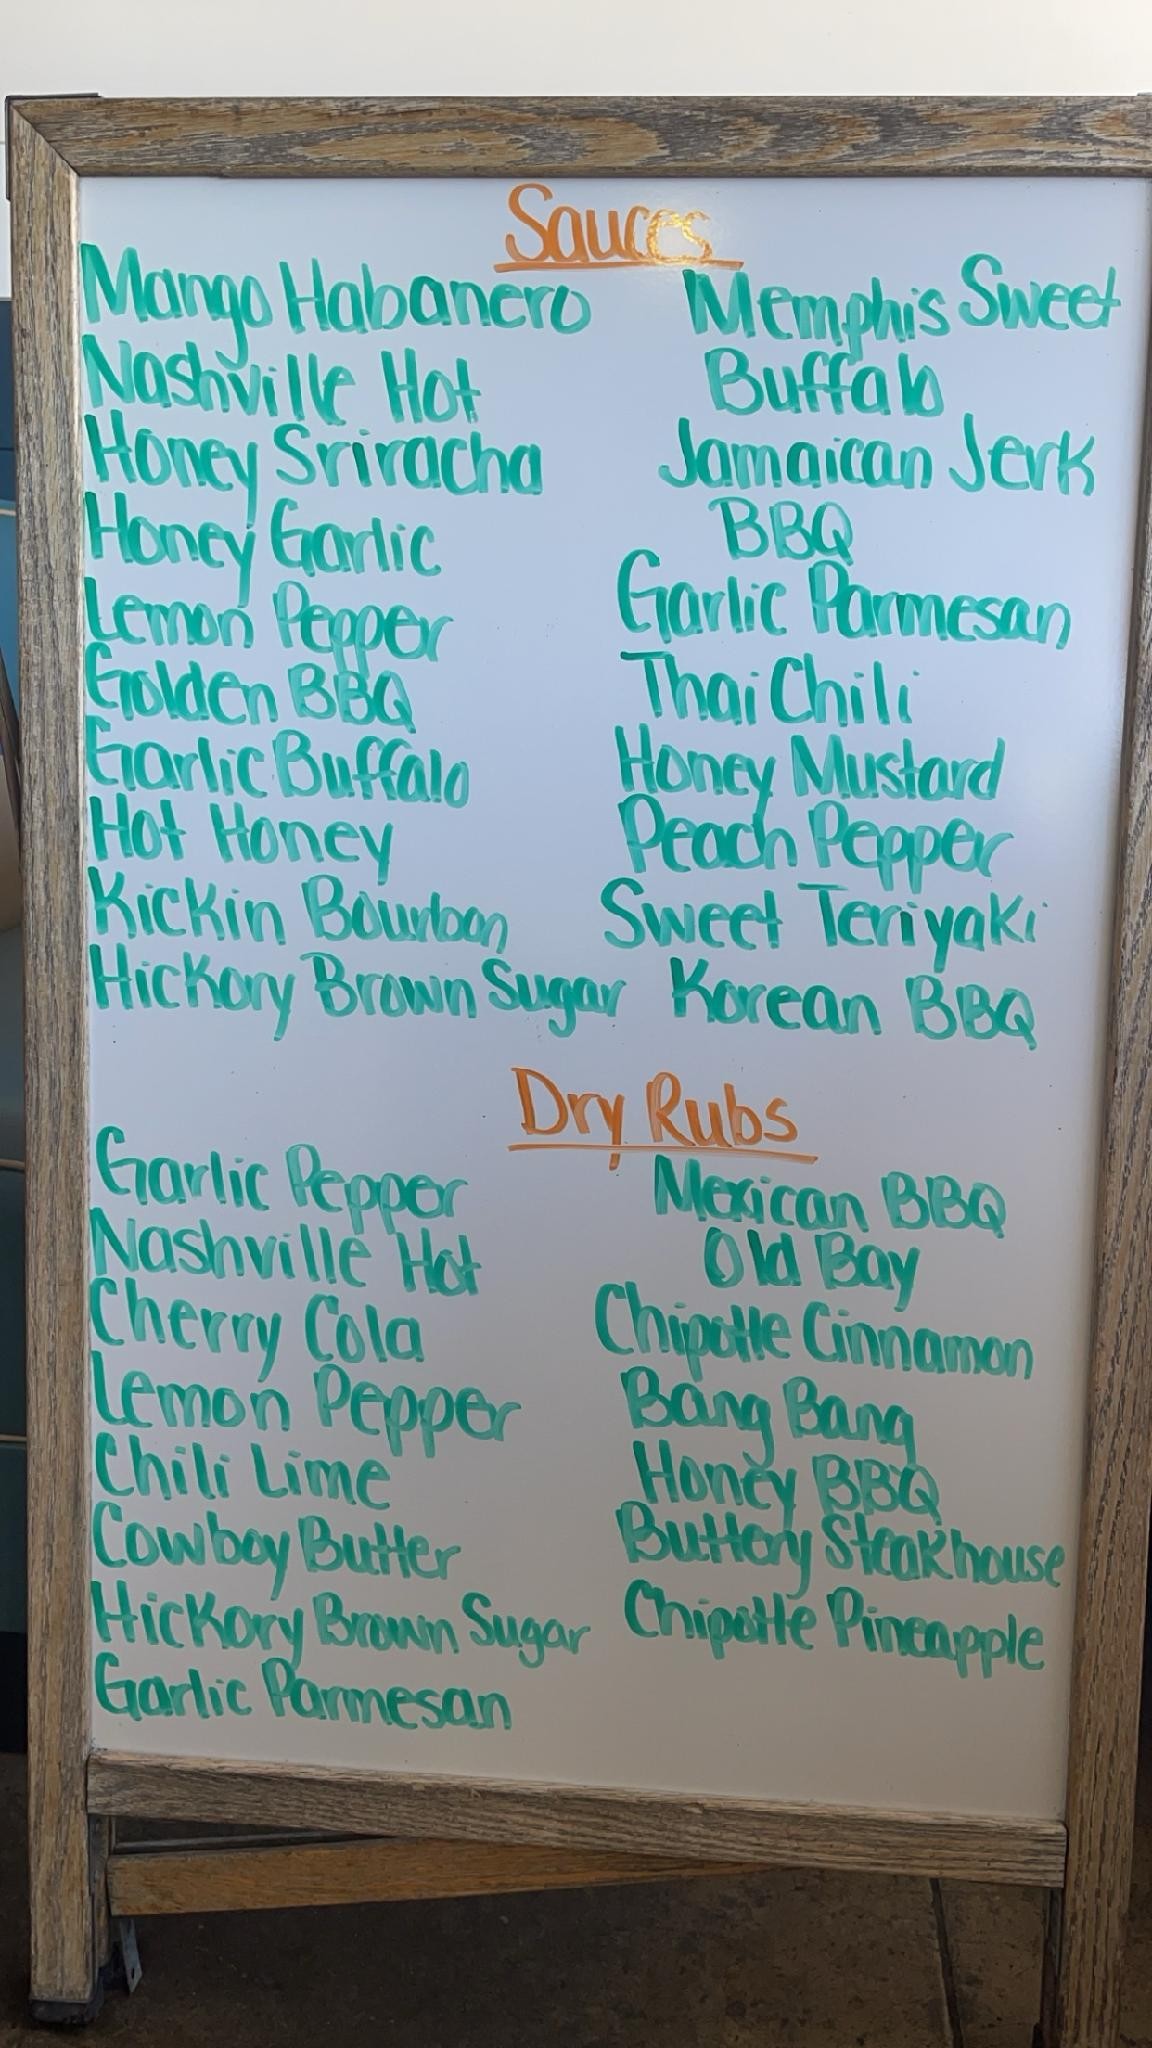 Sauces
Mango Habanero
Nashville Hot
Honey Sriracha
Honey Garlic
Lemon Pepper
Golden BBQ
Garlic Buffalo
Hot Honey
Kickin Bourbon
Hickory Brown Sugar
Memphis Sweet
Buffalo
Jamaican Jerk
BBQ
Garlic Parmesan
Thai Chili
Honey Mustard
Peach Pepper
Sweet Teriyaki
Korean BBQ
Dry Rubs
Garlic Pepper
Nashville Hot
Cherry Cola
Lemon Pepper
Chili Lime
Cowboy Butter
Hickory Brown Sugar
Garlic Parmesan
Mexican BBQ
Old Bay
Chipotle Cinnamon
Bang Bang
Honey BBQ
Buttery Steakhouse
Chipotle Pineapple